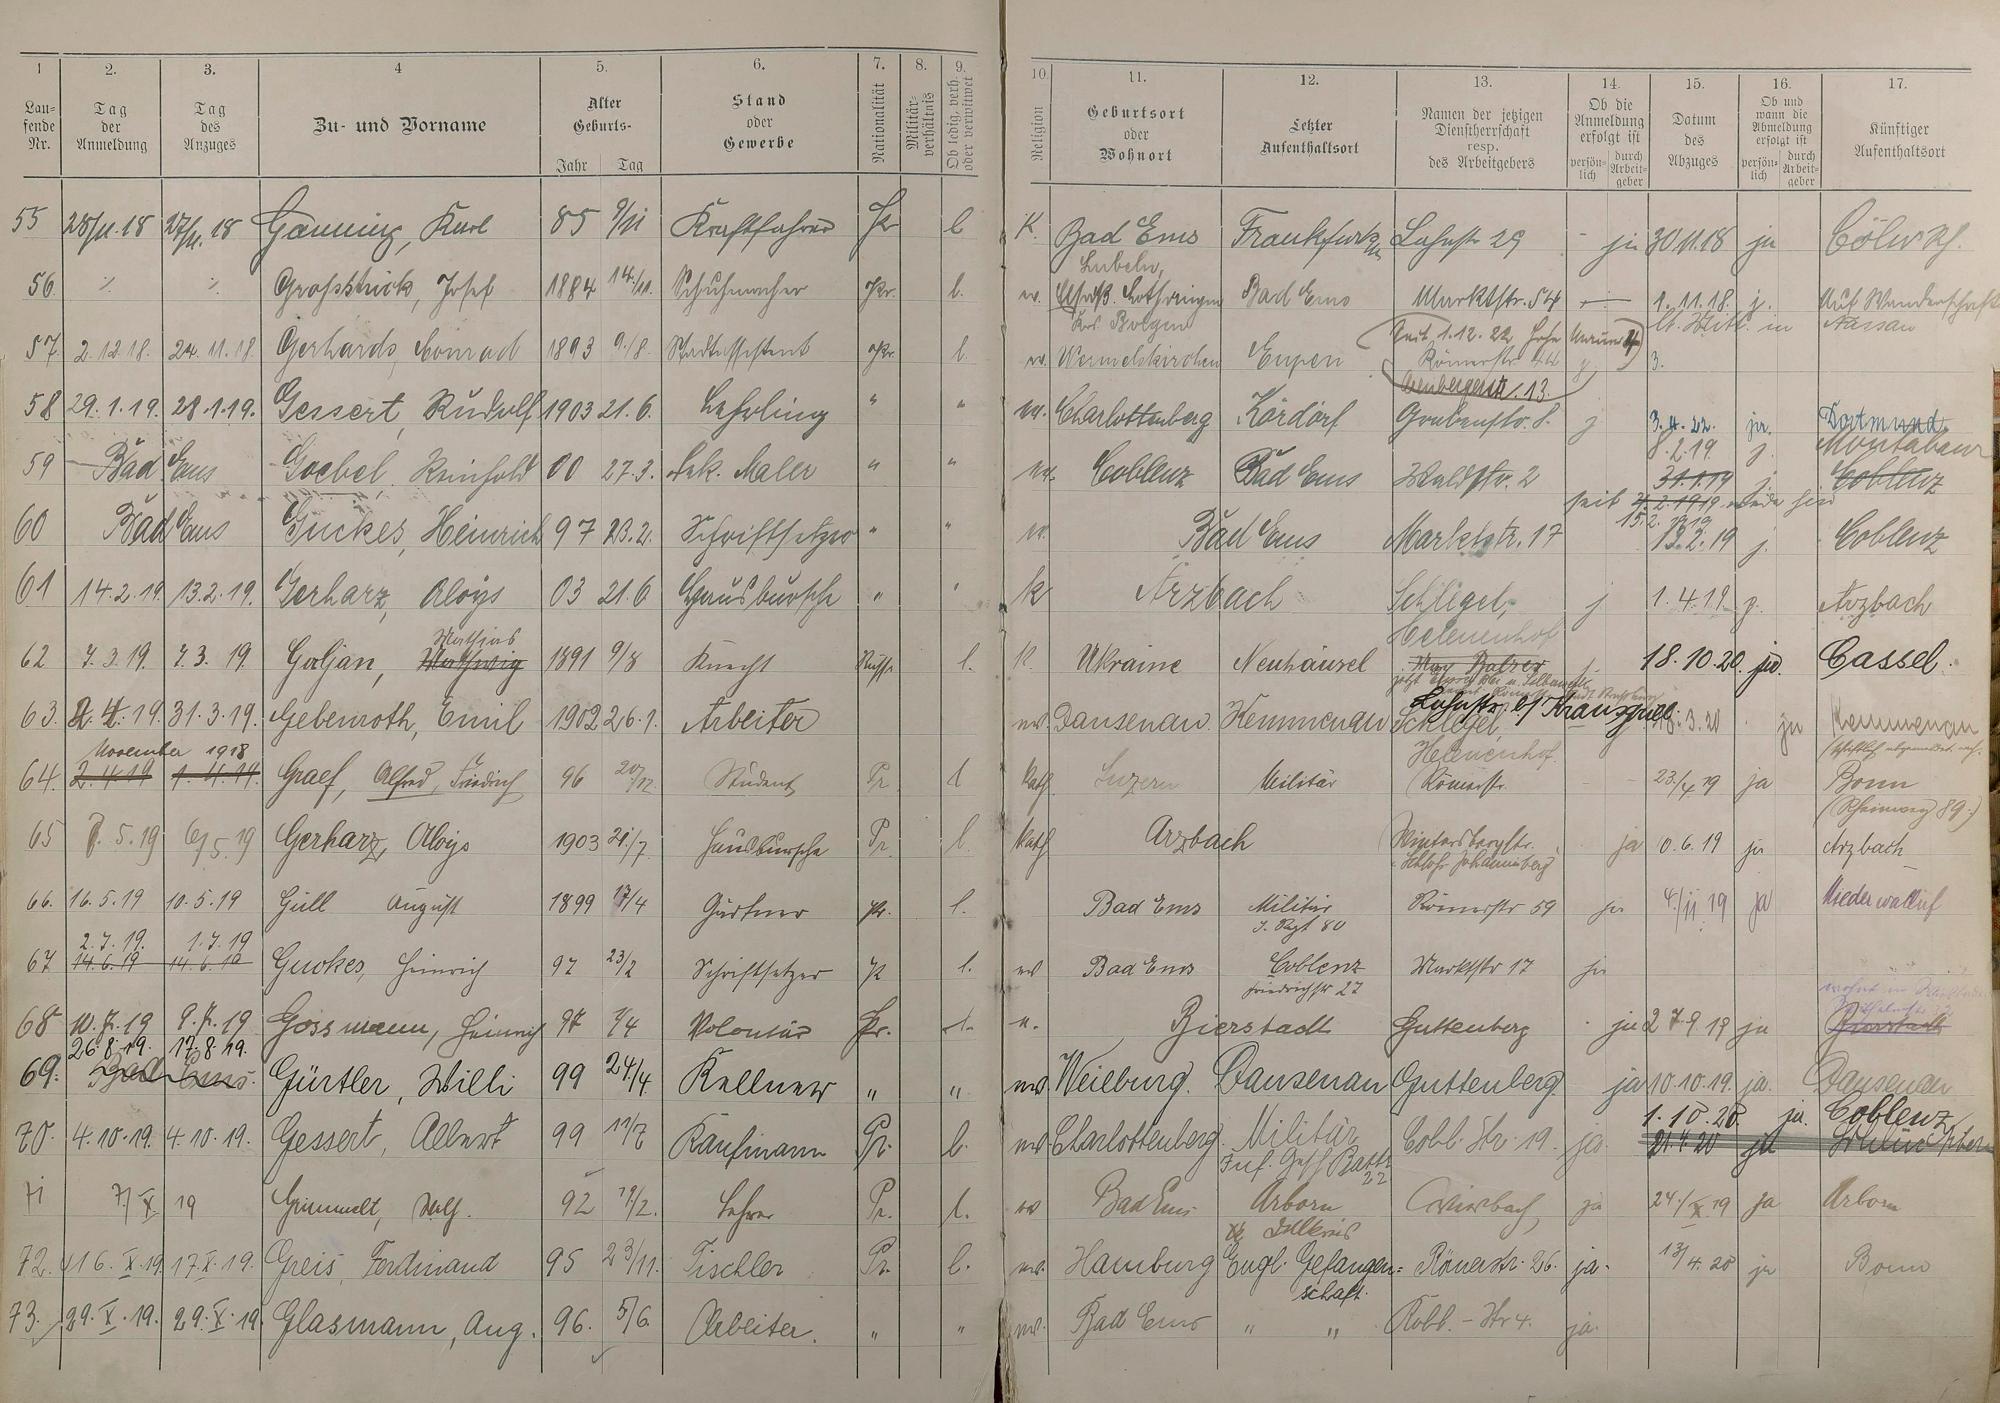 1 2. 3. 4 5. 6. 7. 8. 9.
Laufende Nr. Tag der Anmeldung Tag des Anzuges Zu- und Vorname Alter Geburts- Jahr Tag Stand oder Gewerbe Nationalität Militärverhältnis Ob ledig, verh. oder verwitwet
10. 11. 12. 13. 14. 15. 16. 17.
Religion Geburtsort oder Wohnort Letzter Aufenthaltsort Namen der jetzigen Dienstherrschaft resp. des Arbeitgebers Ob die Anmeldung erfolgt ist persönlich durch Arbeitgeber Datum des Abzuges Ob und wann die Abmeldung erfolgt ist persönlich durch Arbeitgeber Künftiger Aufenthaltsort
55 28/11.18 27/11.18 Karl 85 9/11 Kraftfahrer Pr l K. Bad Ems Frankfurt Lahnstr 29 - ja 30 11.18 ja Cöln
56 Josef 1884 14./11. Schuhmacher Pr. l. Bad Ems Marktstr. 54 1.11.18. j. Auf Wanderschaft
57 2.12.18. 24.11.18 Gerhards, Conrad 1893 9./8. Stadtassistent Pr. l. Wermelskirchen Eupen Römerstr. Nassau
58 29.1.19. 28.1.19. Gessert, Rudolf 1903 21.6. Lehrling " " Charlottenberg Kördorf Grabenstr. 8. j 3.4.22. ja. Dortmund
8.2.19. j. Montabaur
59 Bad Ems Goebel, Reinhold 00 27.3. Dek. Maler " " Coblenz Bad Ems Waldstr. 2 31.1.19 j. Coblenz
15.2.1919
60 Bad Ems Guckes, Heinrich 97 23.2. Schriftsetzer " " Bad Ems Marktstr. 17 13.2.19 j. Coblenz
61 14.2.19. 13.2.19. Gerharz, Aloys 03 21.6 Hausbursche " " K Arzbach Schlegel, Helenenhof j 1.4.19. Arzbach
62 7.3.19. 7.3.19. Goljan, Mathias 1891 9/8 Knecht Russe l. K. Ukraine Neuhäusel Max Balzer j. 18.10.20. ja. Cassel.
63. 2.4.19. 31.3.19. Gebenroth, Emil 1902 26.1. Arbeiter Dausenau. Kemmenau Schlegel, Helenenhof. ja Kemmenau
November 1918
64. 2.4.19 1.4.19. Graef, Alfred, Friedrich 96 20/12. Student Pr l Kath. Luzern Militär Römerstr. 23./4 19 ja Bonn
65 5.19 6/5.19 Gerharz, Aloys 1903 21/7. Hausbursche Pr. l. Kath Arzbach Wintersbergstr. Schloss Johannisberg ja 10.6.19 ja Arzbach
66. 16.5.19 10.5.19 Güll August 1899 17/4 Gärtner Pr. l. Bad Ems Militär J. Rgt 80 Römerstr 59 ja 4/11 19 ja Niederwalluf
2.7.19. 1.7.19
67 14.6.19 14.6.19 Guckes, Heinrich 97 23/2 Schriftsetzer Pr l. Bad Ems Coblenz Friedrichstr 27 Marktstr 17 ja
68 10.7.19 9.7.19 Gossmann, Heinrich 97 7/4 Volontär Pr. l. Bierstadt Guttenberg ja 27.9.19 ja Bierstadt
26.8.19. 17.8.19.
69. Bad Ems. Gürtler, Willi 99 24/4. Kellner " " Weilburg. Dausenau Guttenberg. ja 10.10.19. ja. Dausenau
1.10.20. ja. Coblenz
70. 4.10.19. 4.10.19. Gessert, Albert 99 11/7 Kaufmann Pr. l. Charlottenberg. Militär Cobl. Str. 19. ja 21.4.20 ja
71 7/X 19 92 Lehrer Pr. l. Bad Ems Arborn ja 24./X.19 ja Arborn
72. 16.X.19. 17.X.19. Greis, Ferdinand 95 23/11. Tischler Pr. l. Hamburg Engl. Gefangenschaft. Römerstr. 26. ja. 13/4.20 ja Bonn
73. 29.X.19. 29.X.19. Glasmann, Aug. 96. 5/6. Arbeiter. " " Bad Ems " " Kobl. - Str 4. ja.